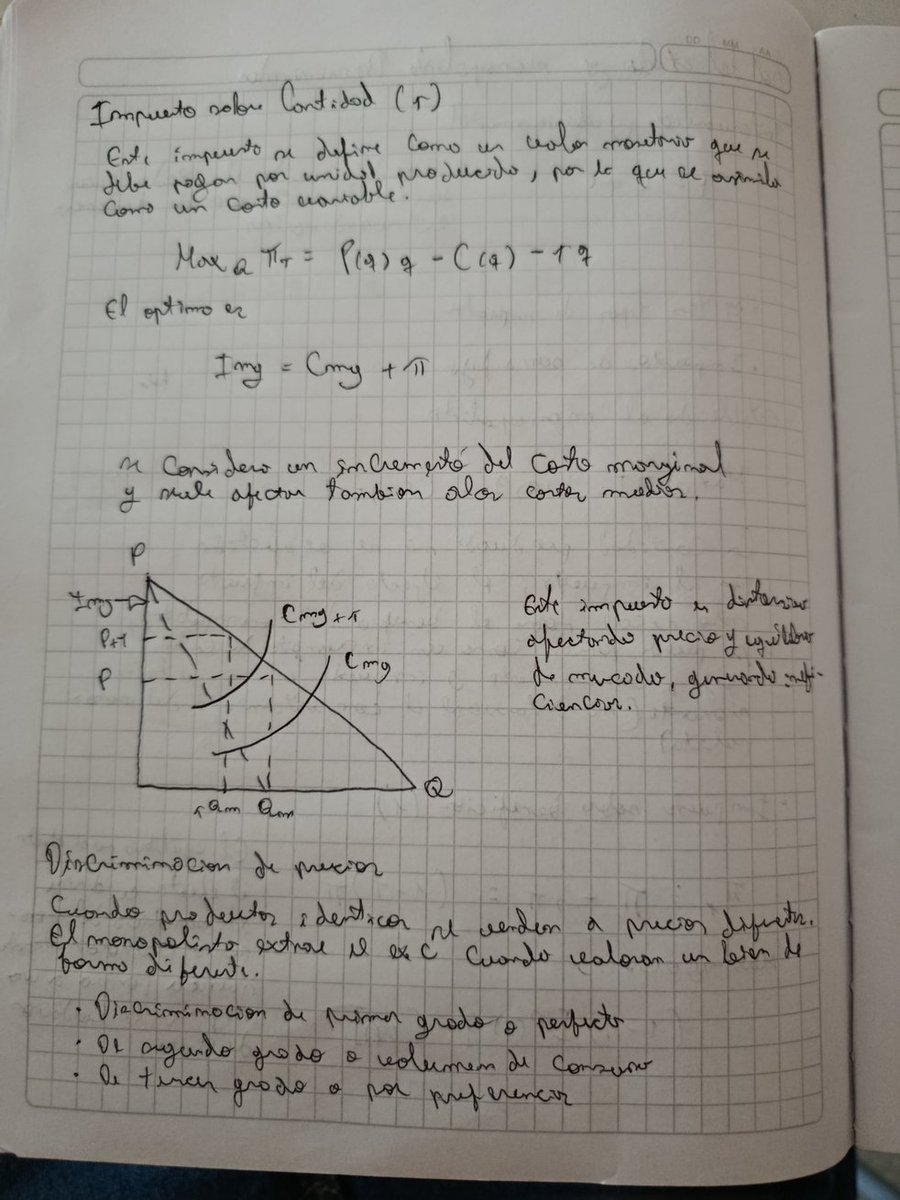 Impuesto sobre Cantidad (τ)
Este impuesto se define como un valor monetario que se
debe pagar por unidad producida, por lo que se asimila
como un costo variable.
Max Q πτ = P(q) q - C(q) - τ q
El optimo es
Img = Cmg + π
se considera un incremento del costo marginal
y suele afectar tambien alos costos medios.
P
Img
Cmg + π
P+τ
Cmg
P
Q
τ Qm Qm
Este impuesto es distorsivo
afectando precio y equilibrio
de mercado, generando inefi-
ciencias.
Discriminacion de precios
Cuando productos identicos se venden a precios difrete.
El monopolista extrae el ex C cuando valoran un bien de
forma diferente.
· Discriminacion de primer grado o perfecta
· De segundo grado o volumen de consumo
· De tercer grado o por preferencias